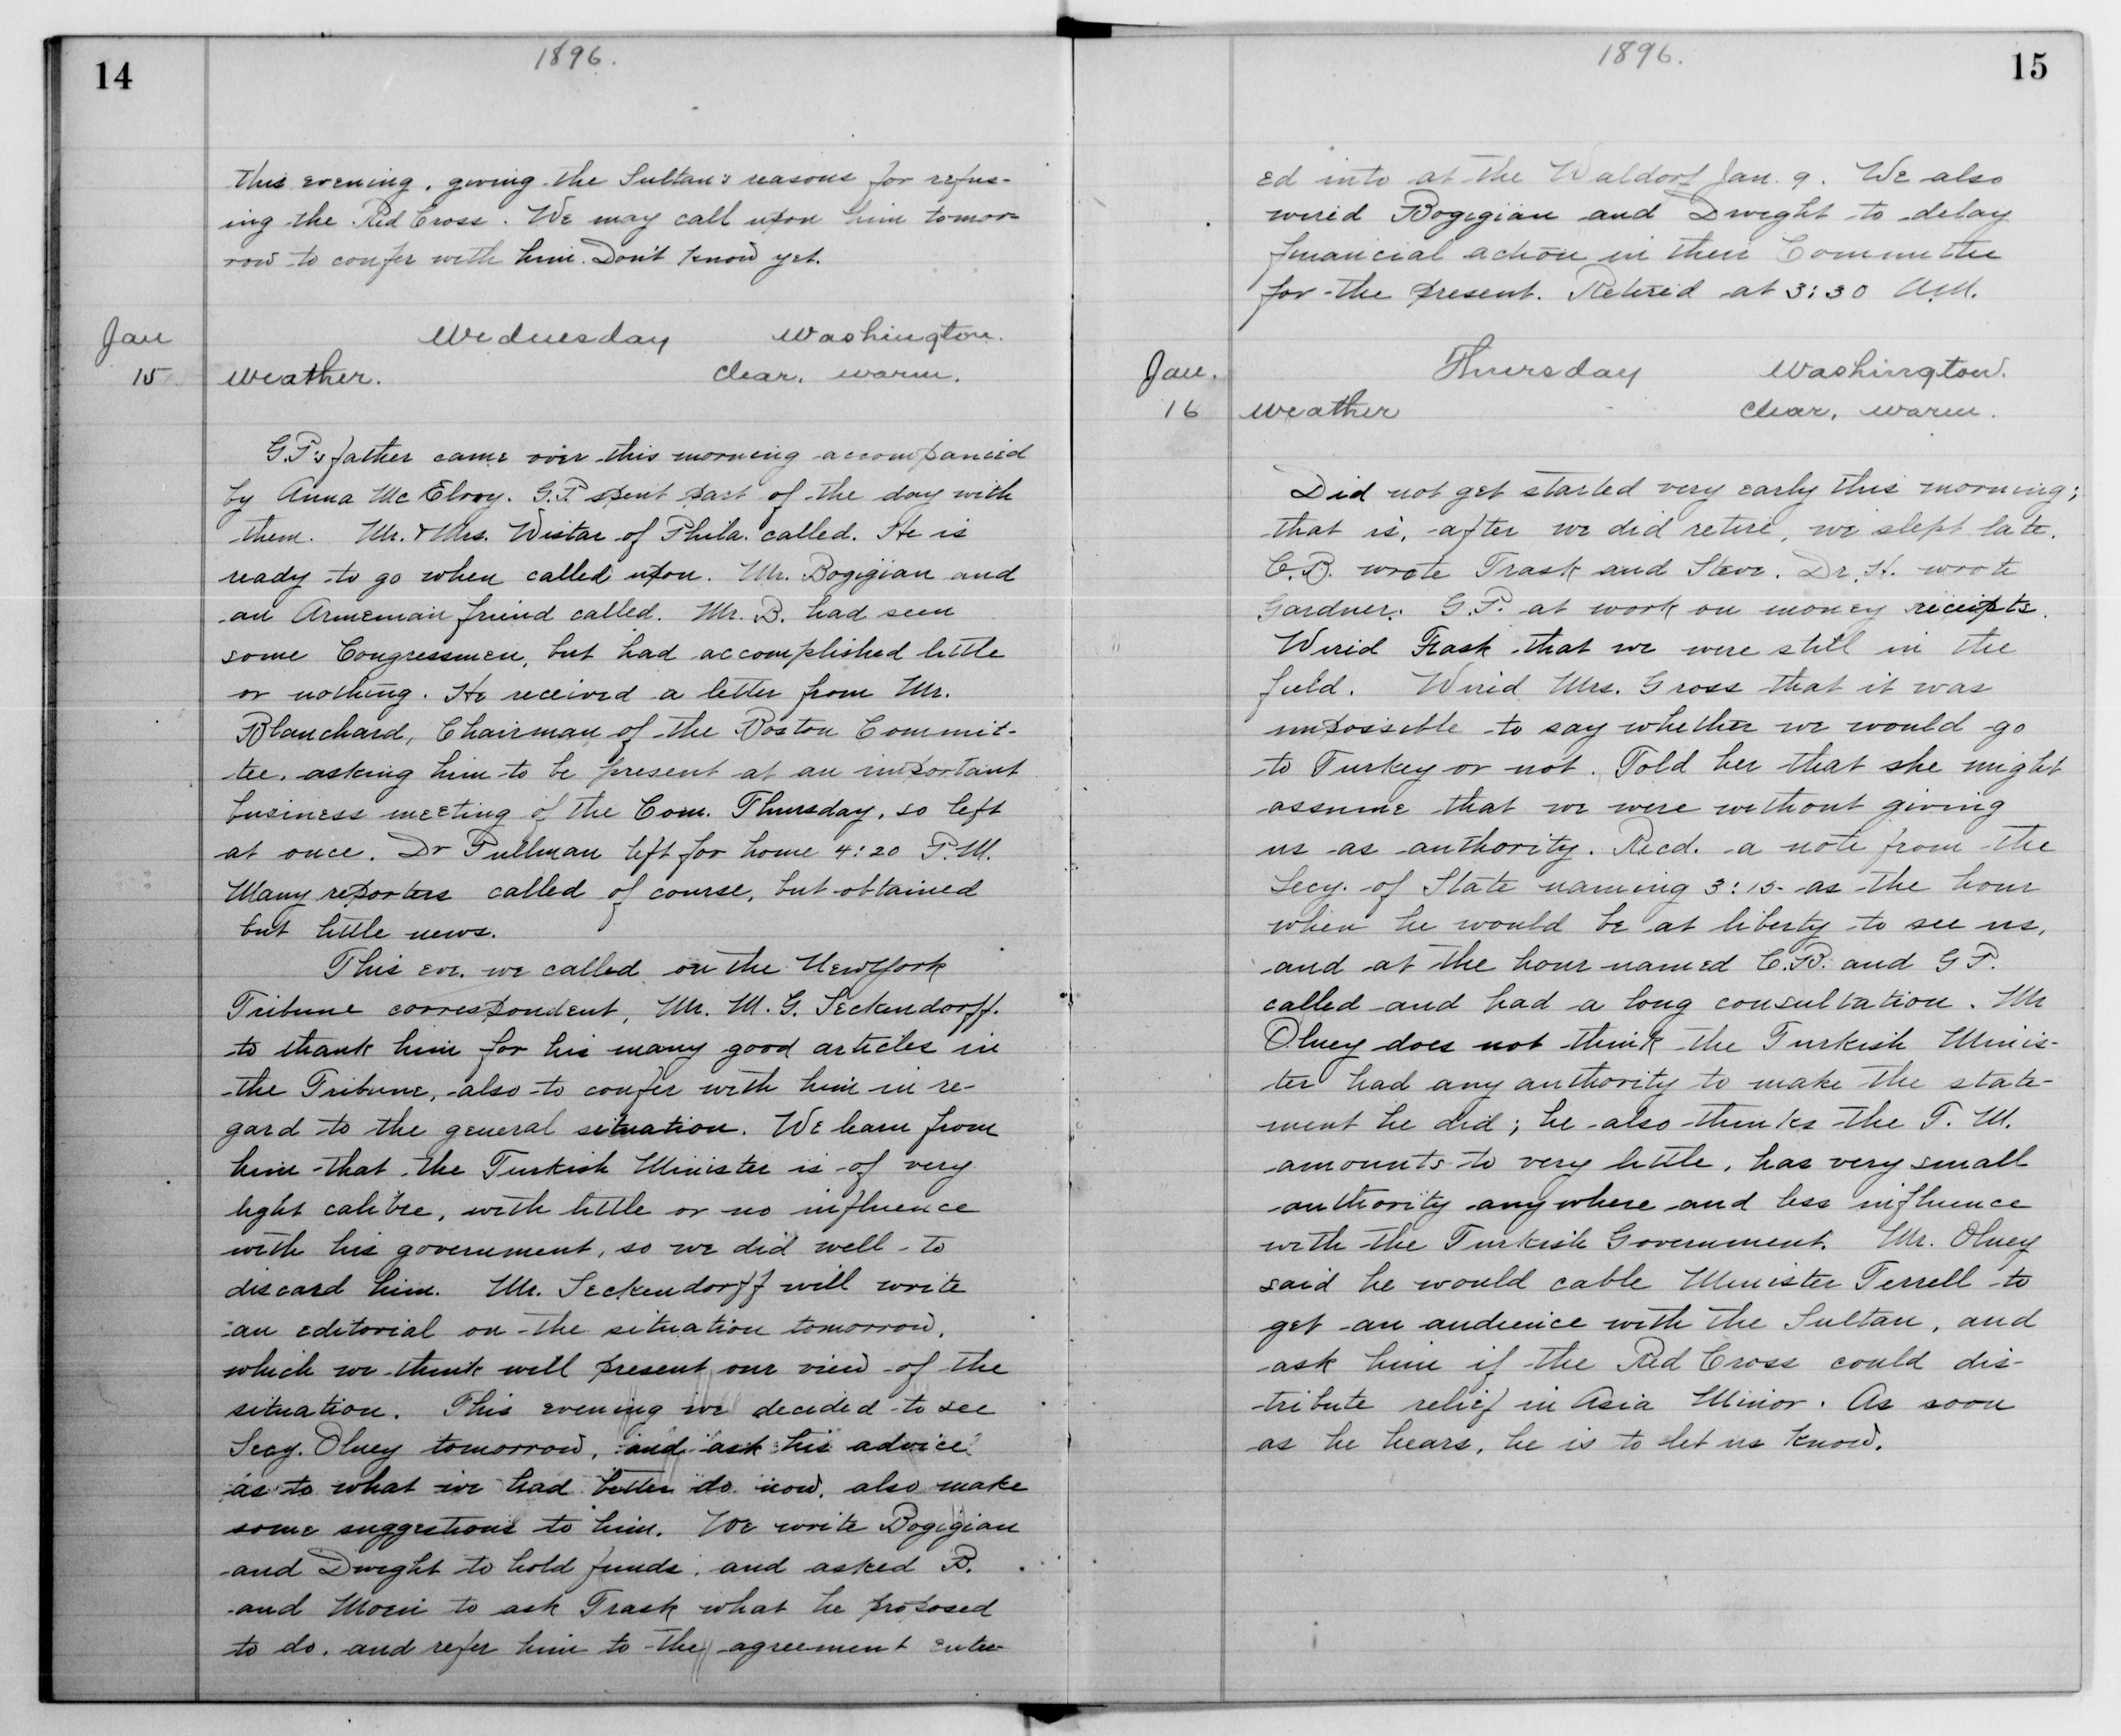 14
1896.
this evening, giving the Sultan's reasons for refus-
ing the Red Cross. We may call upon him tomor-
row to confer with him. Don't know yet.
Jan Wednesday Washington.
15 Weather. Clear, warm.
G.P's father came over this morning accompanied
by Anna McElroy. G.P. spent part of the day with
them. Mr. & Mrs. Wistar of Phila. called. He is
ready to go when called upon. Mr. Bogigian and
an Armenian friend called. Mr. B. had seen
some Congressmen, but had accomplished little
or nothing. He received a letter from Mr.
Blanchard, Chairman of the Boston Commit-
tee, asking him to be present at an important
business meeting of the Com. Thursday, so left
at once. Dr Pullman left for home 4:20 P.M.
Many reporters called of course, but obtained
but little news.
This eve. we called on the New York
Tribune correspondent, Mr. M. G. Seckendorff.
to thank him for his many good articles in
the Tribune, also to confer with him in re-
gard to the general situation. We learn from
him that the Turkish Minister is of very
light calibre, with little or no influence
with his government, so we did well to
discard him. Mr. Seckendorff will write
an editorial on the situation tomorrow,
which we think will present our view of the
situation. This evening we decided to see
Secy. Olney tomorrow, and ask his advice
as to what we had better do now, also make
some suggestions to him. We write Bogigian
and Dwight to hold funds, and asked B.
and Moen to ask Trask what he proposed
to do, and refer him to the agreement enter-
15
1896.
ed into at the Waldorf Jan. 9. We also
wired Bogigian and Dwight to delay
financial action in their Committee
for the present. Retired at 3:30 A.M.
Jan. Thursday Washington.
16 Weather Clear, warm.
Did not get started very early this morning;
that is, after we did retire, we slept late.
C.B. wrote Trask and Steve. Dr. H. wrote
Gardner. G.P. at work on money receipts.
Wired Trask that we were still in the
field. Wired Mrs. Gross that it was
impossible to say whether we would go
to Turkey or not. Told her that she might
assume that we were without giving
us as authority. Recd. a note from the
Secy. of State naming 3:15 as the hour
when he would be at liberty to see us,
and at the hour named C.B. and G P.
called and had a long consultation. Mr
Olney does not think the Turkish Minis-
ter had any authority to make the state-
ment he did; he also thinks the T. M.
amounts to very little, has very small
authority anywhere and less influence
with the Turkish Government. Mr. Olney
said he would cable Minister Terrell to
get an audience with the Sultan, and
ask him if the Red Cross could dis-
tribute relief in Asia Minor. As soon
as he hears, he is to let us know.